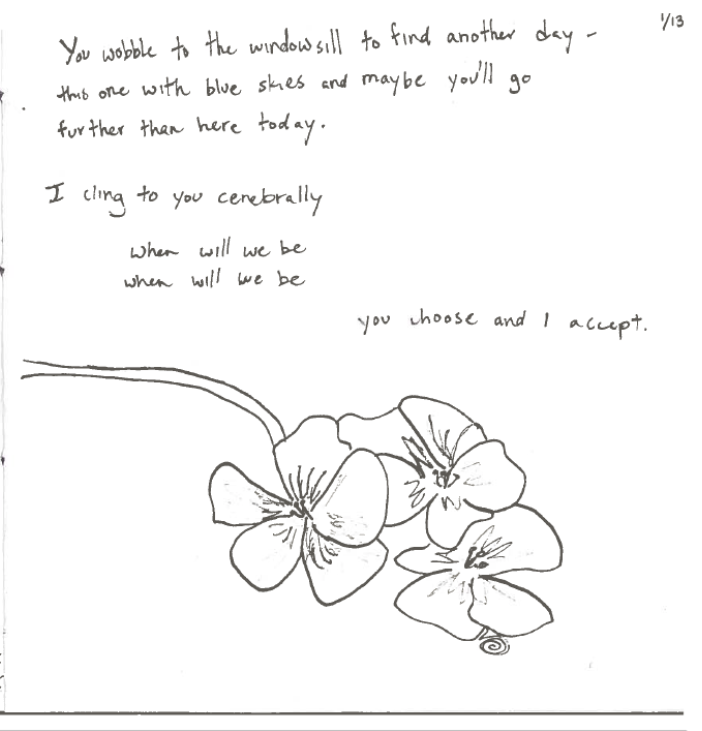 1/13
You wobble to the windowsill to find another day -
this one with blue skies and maybe you'll go
further than here today.
I cling to you cerebrally
when will we be
when will we be
you choose and I accept.